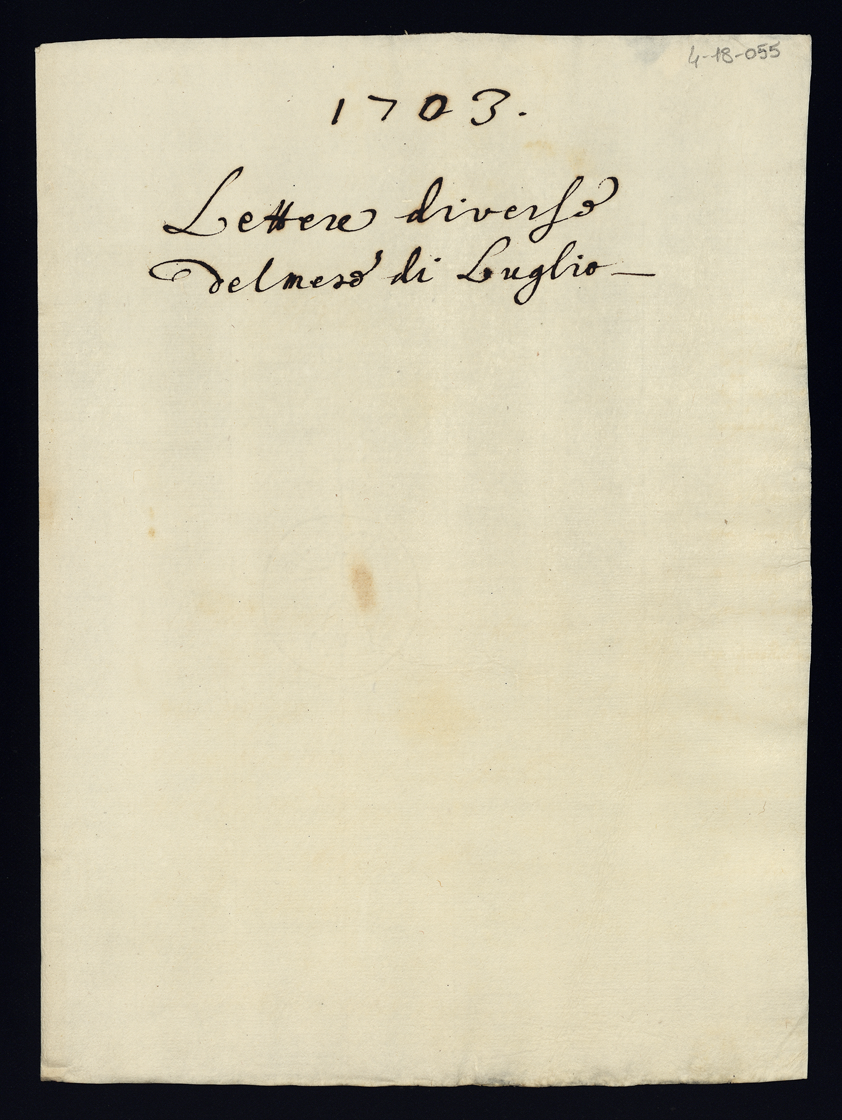 4-18-055
1703.
Lettere diverse
del mese di Luglio —